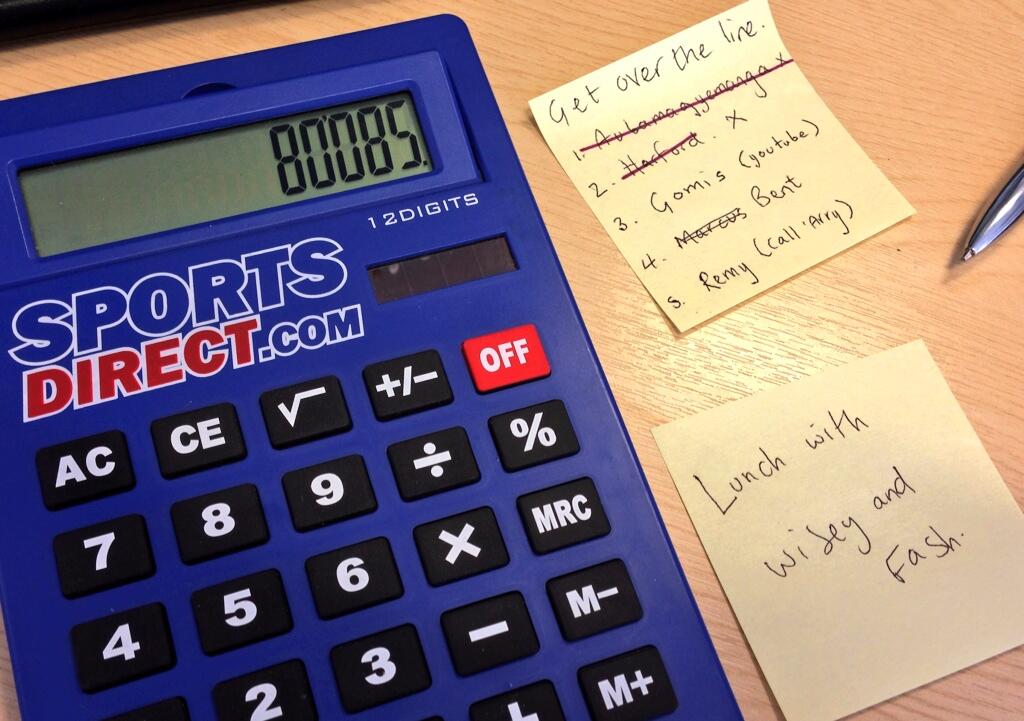 80085.
12DIGITS
SPORTS
DIRECT.COM
OFF
+/−
√
CE
AC
%
÷
9
8
7
MRC
×
6
5
4
M−
−
3
2
M+
Get over the line.
1. Aubamagyemanga x
2. Harford. X
3. Gomis (youtube)
4. Marcus Bent
5. Remy (call 'Arry)
Lunch with
wisey and
Fash.